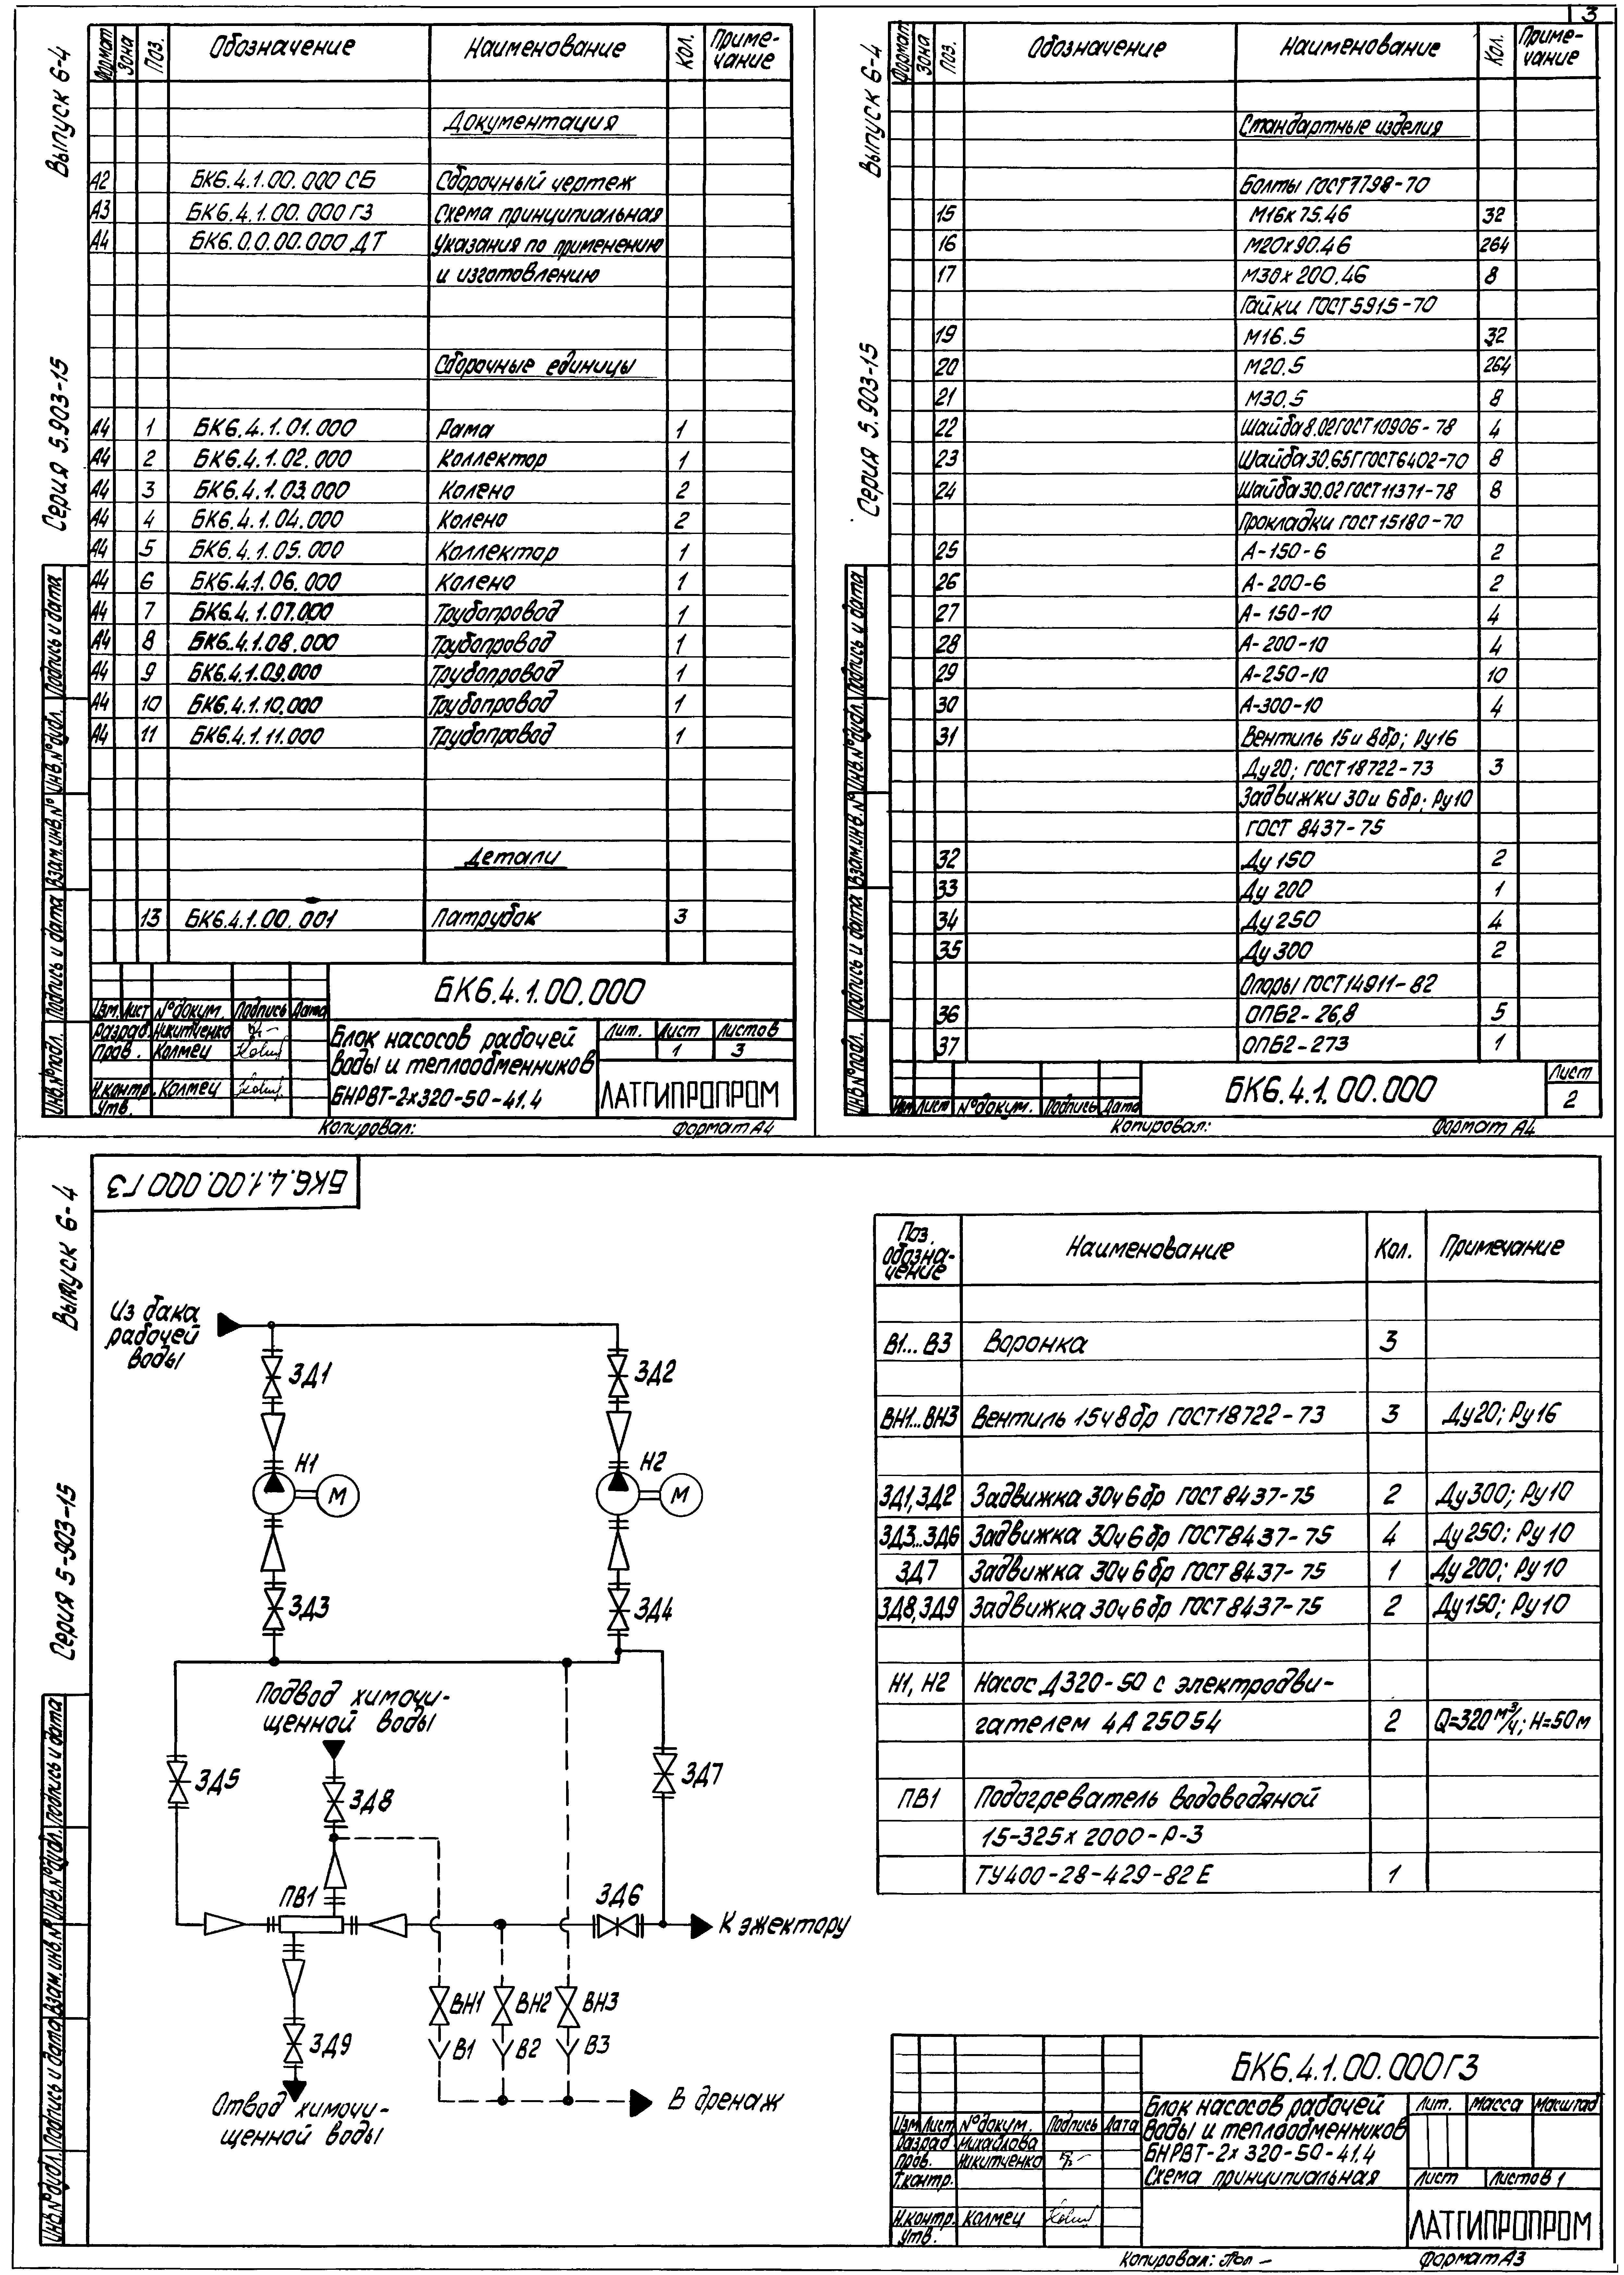 3
Выпуск 6-4
Серия 5.903-15
Формат Зона Поз. Обозначение Наименование Кол. Приме-
чание
Документация
А2 БК6.4.1.00.000 СБ Сборочный чертеж
А3 БК6.4.1.00.000 ГЗ Схема принципиальная
А4 БК6.0.0.00.000 ДТ Указания по применению
и изготовлению
Сборочные единицы
А4 1 БК6.4.1.01.000 Рама 1
А4 2 БК6.4.1.02.000 Коллектор 1
А4 3 БК6.4.1.03.000 Колено 2
А4 4 БК6.4.1.04.000 Колено 2
А4 5 БК6.4.1.05.000 Коллектор 1
А4 6 БК6.4.1.06.000 Колено 1
А4 7 БК6.4.1.07.000 Трубопровод 1
А4 8 БК6.4.1.08.000 Трубопровод 1
А4 9 БК6.4.1.09.000 Трубопровод 1
А4 10 БК6.4.1.10.000 Трубопровод 1
А4 11 БК6.4.1.11.000 Трубопровод 1
Детали
13 БК6.4.1.00.001 Патрубок 3
Инв.№подл. Подпись и дата Взам.инв.№ Инв.№дубл. Подпись и дата
БК6.4.1.00.000
Изм. Лист №докум. Подпись Дата
Разраб. Никитченко
Пров. Колмец
Н.контр. Колмец
Утв.
Блок насосов рабочей
воды и теплообменников
БНРВТ-2х320-50-41.4
Лит. Лист Листов
1 3
ЛАТГИПРОПРОМ
Копировал: Формат А4
Выпуск 6-4
Серия 5.903-15
Формат Зона Поз. Обозначение Наименование Кол. Приме-
чание
Стандартные изделия
Болты ГОСТ7798-70
15 М16х75.46 32
16 М20х90.46 264
17 М30х200.46 8
Гайки ГОСТ5915-70
19 М16.5 32
20 М20.5 264
21 М30.5 8
22 Шайба 8.02 ГОСТ10906-78 4
23 Шайба 30.65Г ГОСТ6402-70 8
24 Шайба 30.02 ГОСТ11371-78 8
Прокладки ГОСТ15180-70
25 А-150-6 2
26 А-200-6 2
27 А-150-10 4
28 А-200-10 4
29 А-250-10 10
30 А-300-10 4
31 Вентиль 15и 8бр; Ру16
Ду20; ГОСТ18722-73 3
Задвижки 30и 6бр; Ру10
ГОСТ 8437-75
32 Ду 150 2
33 Ду 200 1
34 Ду 250 4
35 Ду 300 2
Опоры ГОСТ14911-82
36 ОПБ2-26,8 5
37 ОПБ2-273 1
Инв.№подл. Подпись и дата Взам.инв.№ Инв.№дубл. Подпись и дата
Изм Лист №докум. Подпись Дата
БК6.4.1.00.000
Лист
2
Копировал: Формат А4
Выпуск 6-4
Серия 5-903-15
БК6.4.1.00.000 ГЗ
Из бака
рабочей
воды
ЗД1
ЗД2
Н1
М
Н2
М
ЗД3
ЗД4
Подвод химочи-
щенной воды
ЗД5
ЗД8
ЗД7
ПВ1
ЗД6
К эжектору
ВН1 ВН2 ВН3
В1 В2 В3
ЗД9
В дренаж
Отвод химочи-
щенной воды
Поз.
обозна-
чение
Наименование Кол. Примечание
В1...В3 Воронка 3
ВН1...ВН3 Вентиль 15ч8бр ГОСТ18722-73 3 Ду20; Ру16
ЗД1,ЗД2 Задвижка 30ч6бр ГОСТ 8437-75 2 Ду300; Ру10
ЗД3...ЗД6 Задвижка 30ч6бр ГОСТ8437-75 4 Ду250; Ру10
ЗД7 Задвижка 30ч6бр ГОСТ 8437-75 1 Ду200; Ру10
ЗД8,ЗД9 Задвижка 30ч6бр ГОСТ 8437-75 2 Ду150; Ру10
Н1, Н2 Насос Д320-50 с электродви-
гателем 4А250S4 2 Q=320м³/ч; Н=50м
ПВ1 Подогреватель водоводяной
15-325х2000-Р-3
ТУ400-28-429-82Е 1
Инв.№дубл. Подпись и дата Взам.инв.№ Инв.№дубл. Подпись и дата
БК6.4.1.00.000ГЗ
Изм Лист №докум. Подпись Дата
Разраб. Михайлова
Пров. Никитченко
Т.контр.
Н.контр. Колмец
Утв.
Блок насосов рабочей
воды и теплообменников
БНРВТ-2х320-50-41.4
Схема принципиальная
Лит. Масса Масштаб
Лист Листов 1
ЛАТГИПРОПРОМ
Копировал: Формат А3